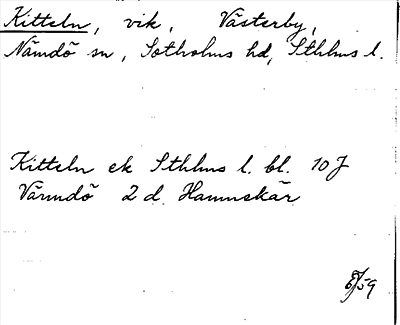 Kitteln, vik, Västerby,
Nämdö sn, Sotholms hd, Sthlms l.
Kitteln ek Sthlms l. bl. 10 J
Värmdö 2 d. Hamnskär